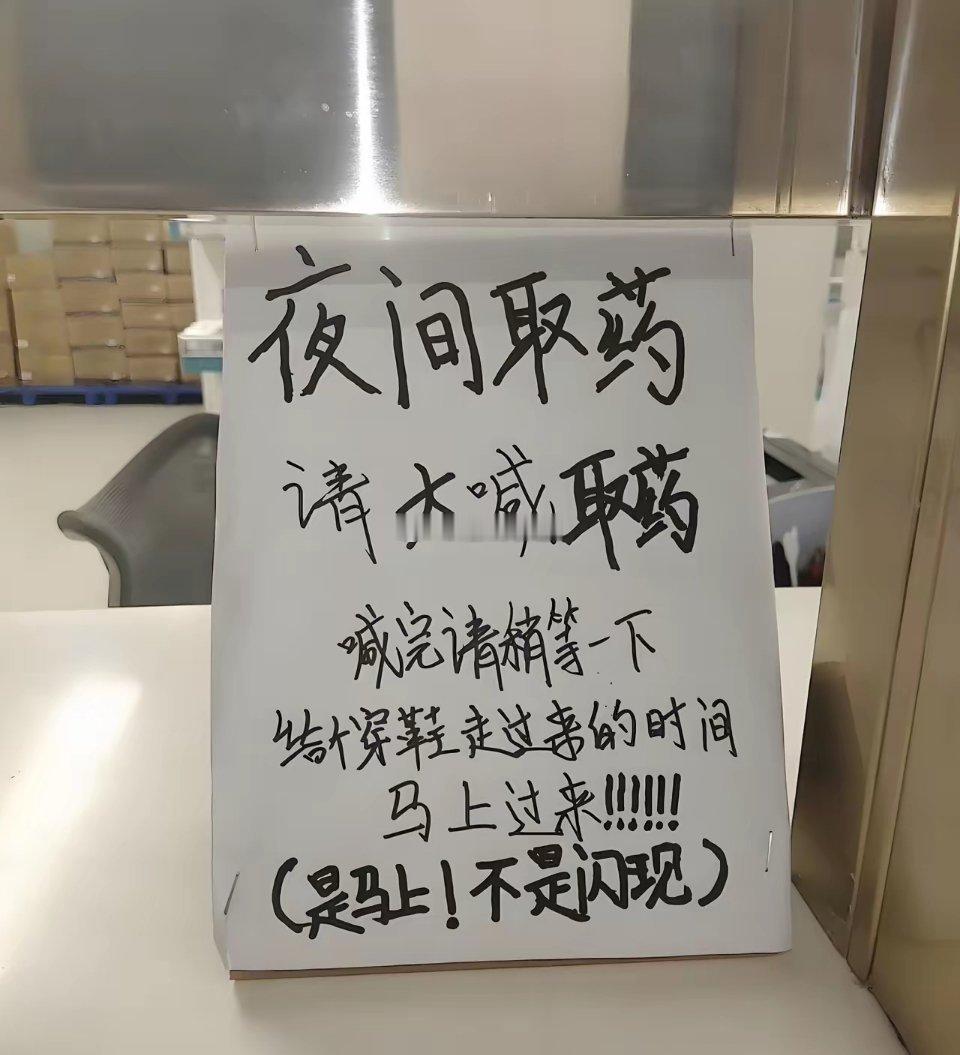 夜间取药
请大喊取药
喊完请稍等一下
给个穿鞋走过来的时间
马上过来!!!!!!
(是马上!不是闪现)